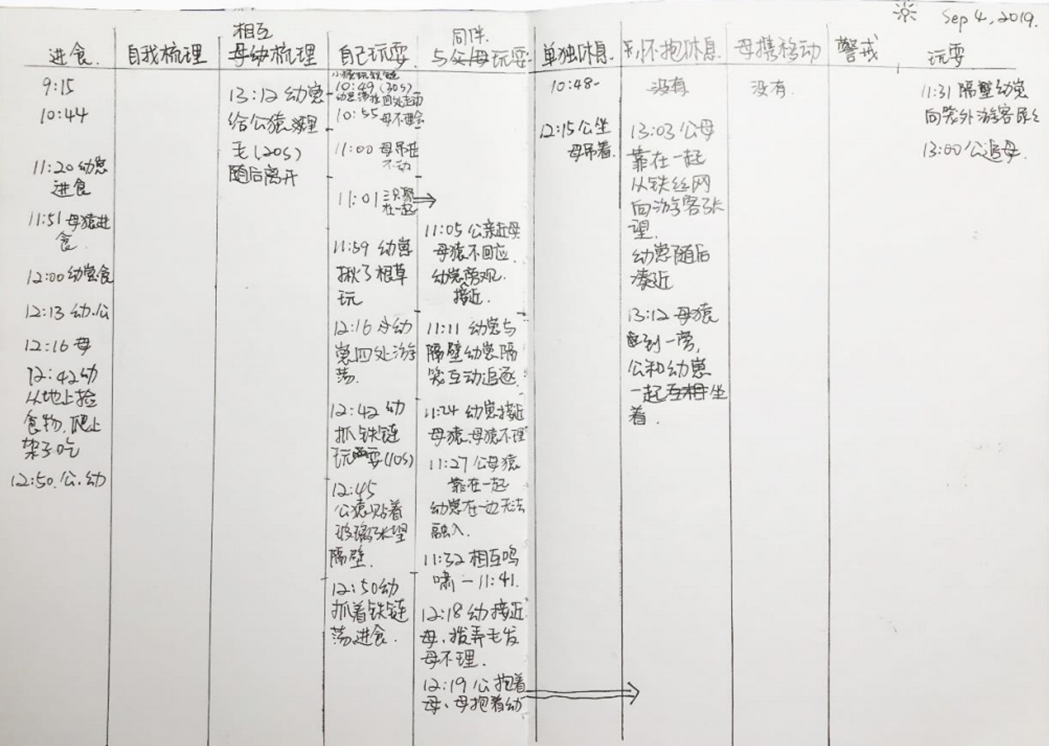 Sep 4, 2019.
进食.
自我梳理
相互
母幼梳理
自己玩耍
同伴.
与父母玩耍
单独休息.
怀抱休息
母携移动
警戒
玩耍
9:15
10:44
11:20 幼崽
进食
11:51 母猿进
食.
12:00 幼崽食
12:13 幼.公
12:16 母
12:42 幼
从地上捡
食物,爬上
架子吃
12:50.公.幼
13:12 幼崽
给公猿理
毛 (20s)
随后离开
10:49 (30s)
10:55 母不理会
11:00 母吊在
不动
11:01 三只聚
在一起
11:59 幼崽
揪了根草
玩
12:16 幼
崽四处游
荡.
12:42 幼
抓铁链
玩耍(10s)
12:45
公猿贴着
玻璃张望
隔壁.
12:50 幼
抓着铁链
荡进食.
11:05 公亲近母
母猿不回应.
幼崽旁观.
接近.
11:11 幼崽与
隔壁幼崽隔
笼互动追逐.
11:24 幼崽接近
母猿.母猿不理
11:27 公母猿
靠在一起
幼崽在一边无法
融入.
11:32 相互鸣
啸 - 11:41.
12:18 幼接近
母、拨弄毛发
母不理.
12:19 公抱着
母、母抱着幼
10:48-
12:15 公坐
母吊着.
没有
13:03 公母
靠在一起
从铁丝网
向游客张
望.
幼崽随后
凑近
13:12 母猿
到一旁,
公和幼崽
一起坐
着.
没有.
11:31 隔壁幼崽
向笼外游客尿
13:00 公追母.